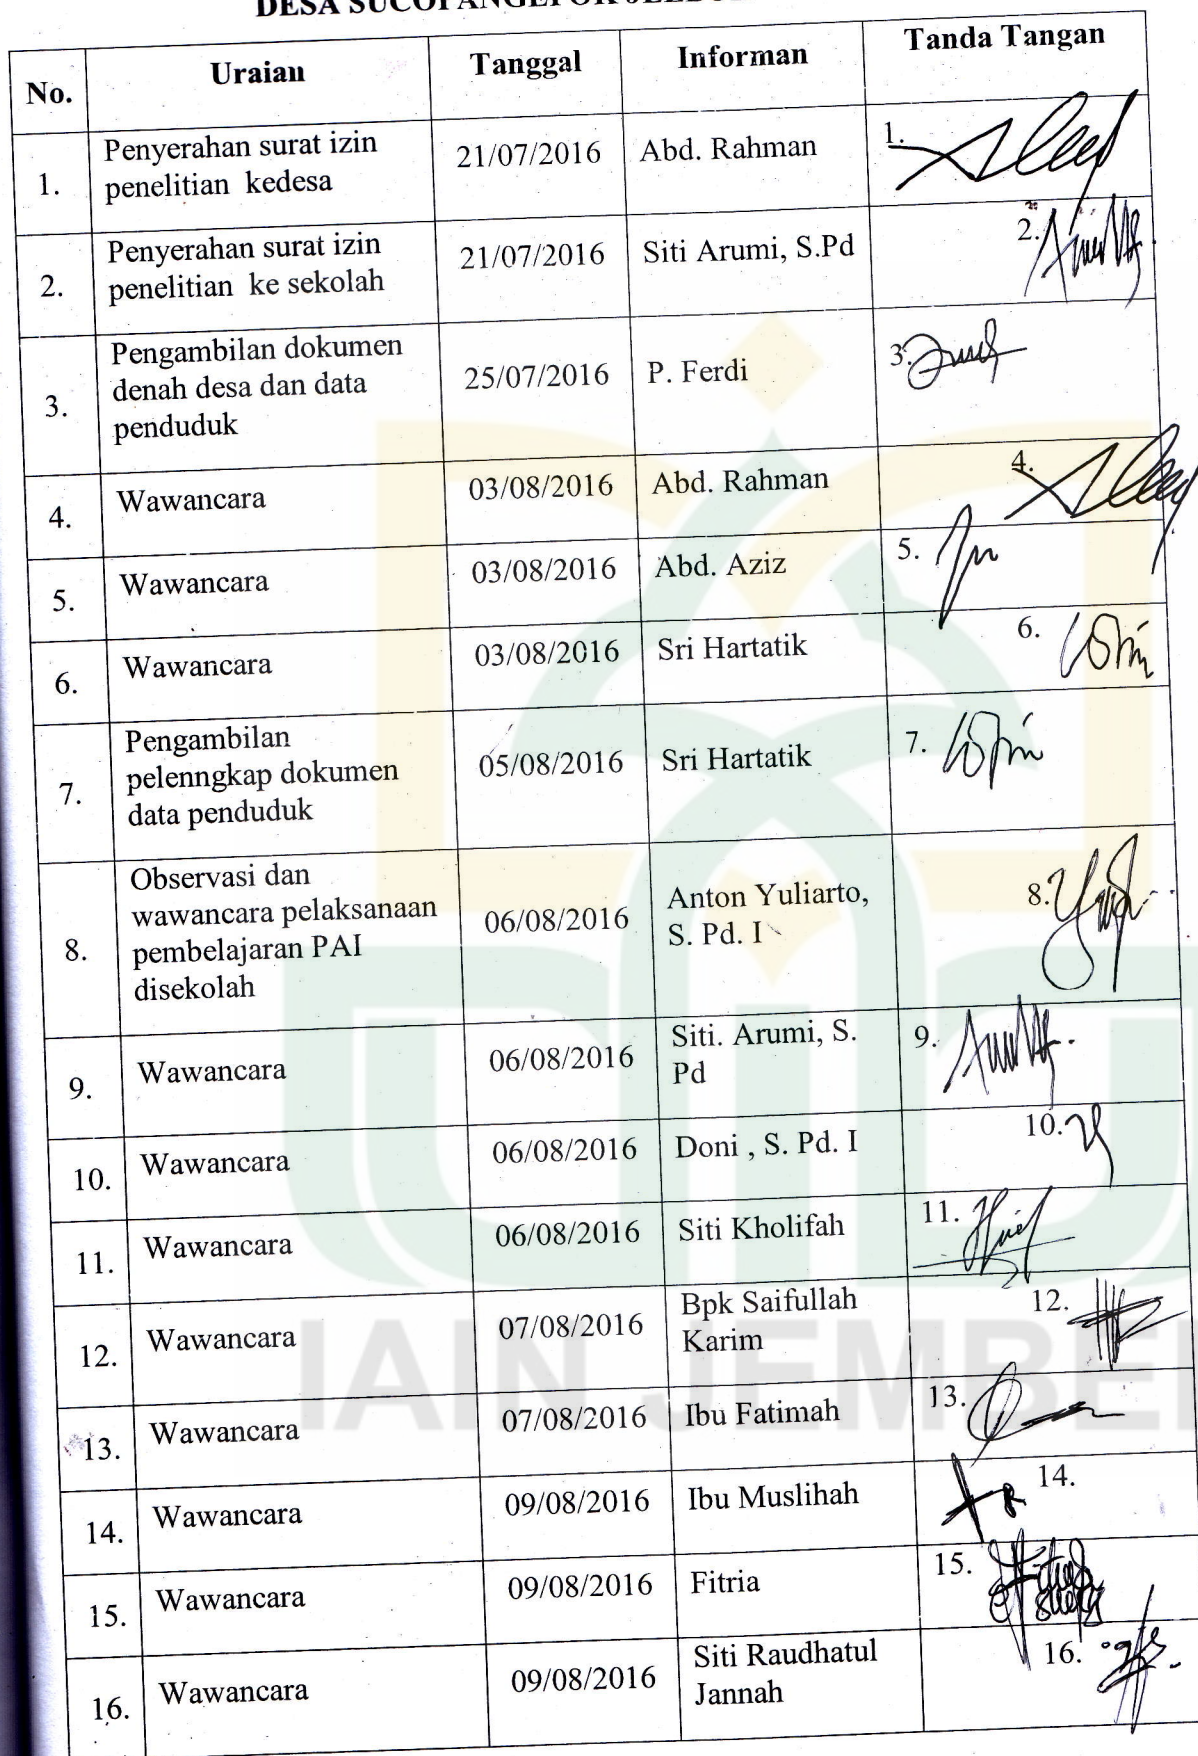 DESA
No.
Uraian
Tanggal
Informan
Tanda Tangan
1.
Penyerahan surat izin
penelitian kedesa
21/07/2016
Abd. Rahman
1.
2.
Penyerahan surat izin
penelitian ke sekolah
21/07/2016
Siti Arumi, S.Pd
2.
3.
Pengambilan dokumen
denah desa dan data
penduduk
25/07/2016
P. Ferdi
3.
4.
Wawancara
03/08/2016
Abd. Rahman
4.
5.
Wawancara
03/08/2016
Abd. Aziz
5.
6.
Wawancara
03/08/2016
Sri Hartatik
6.
7.
Pengambilan
pelenngkap dokumen
data penduduk
05/08/2016
Sri Hartatik
7.
8.
Observasi dan
wawancara pelaksanaan
pembelajaran PAI
disekolah
06/08/2016
Anton Yuliarto,
S. Pd. I
8.
9.
Wawancara
06/08/2016
Siti. Arumi, S.
Pd
9.
10.
Wawancara
06/08/2016
Doni , S. Pd. I
10.
11.
Wawancara
06/08/2016
Siti Kholifah
11.
12.
Wawancara
07/08/2016
Bpk Saifullah
Karim
12.
13.
Wawancara
07/08/2016
Ibu Fatimah
13.
14.
Wawancara
09/08/2016
Ibu Muslihah
14.
15.
Wawancara
09/08/2016
Fitria
15.
16.
Wawancara
09/08/2016
Siti Raudhatul
Jannah
16.
IAIN JEMBE